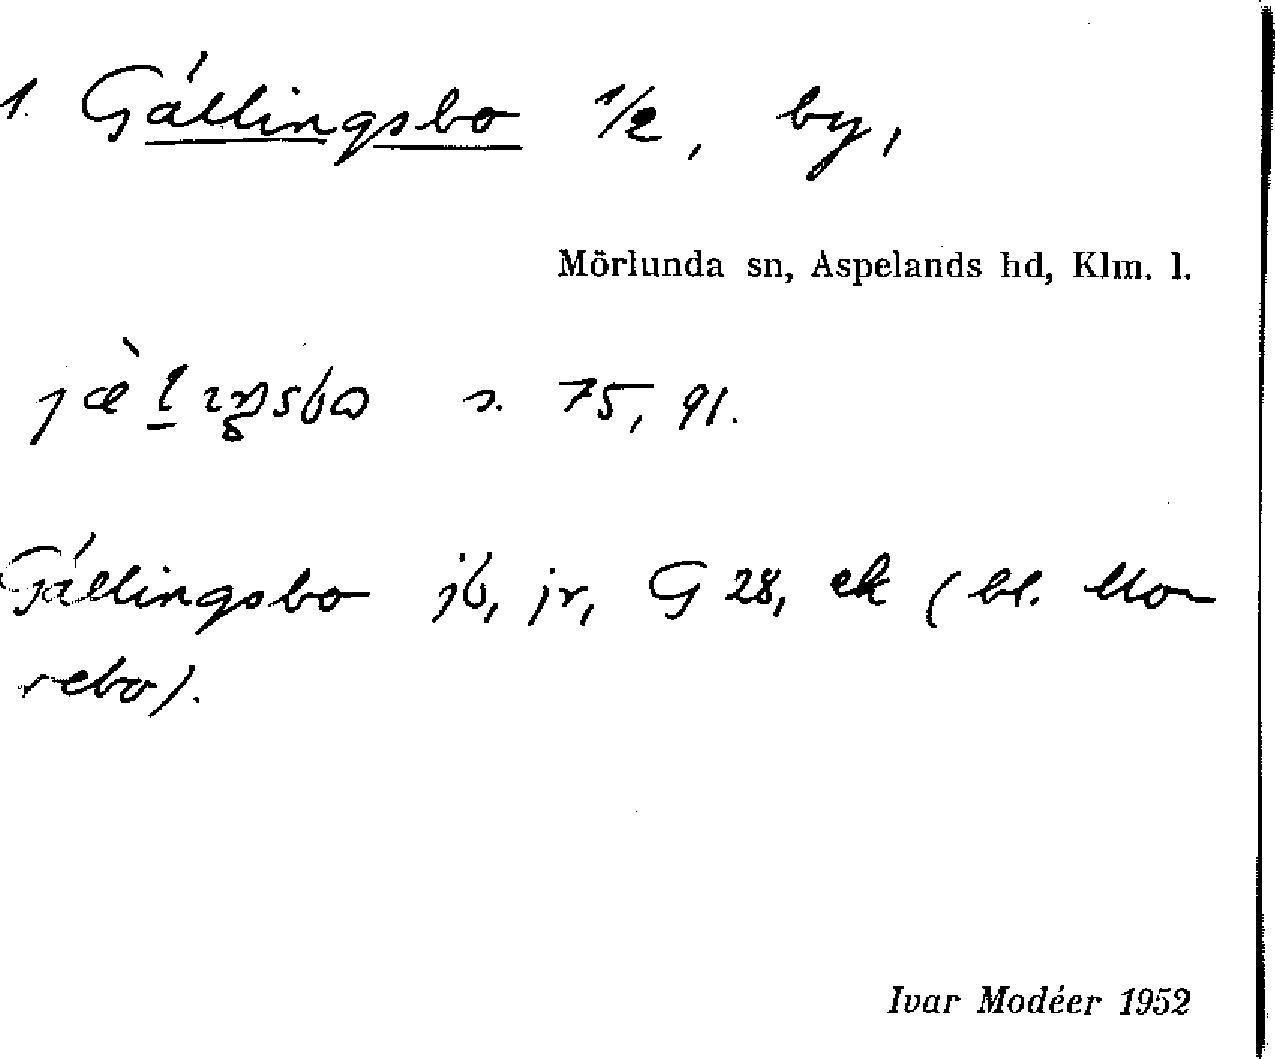 1. Gällingsbo 1/2, by,
Mörlunda sn, Aspelands hd, Klm. l.
s. 75, 91.
Gällingsbo jb, jr, G 28, ek (bl.
rebo).
Ivar Modéer 1952